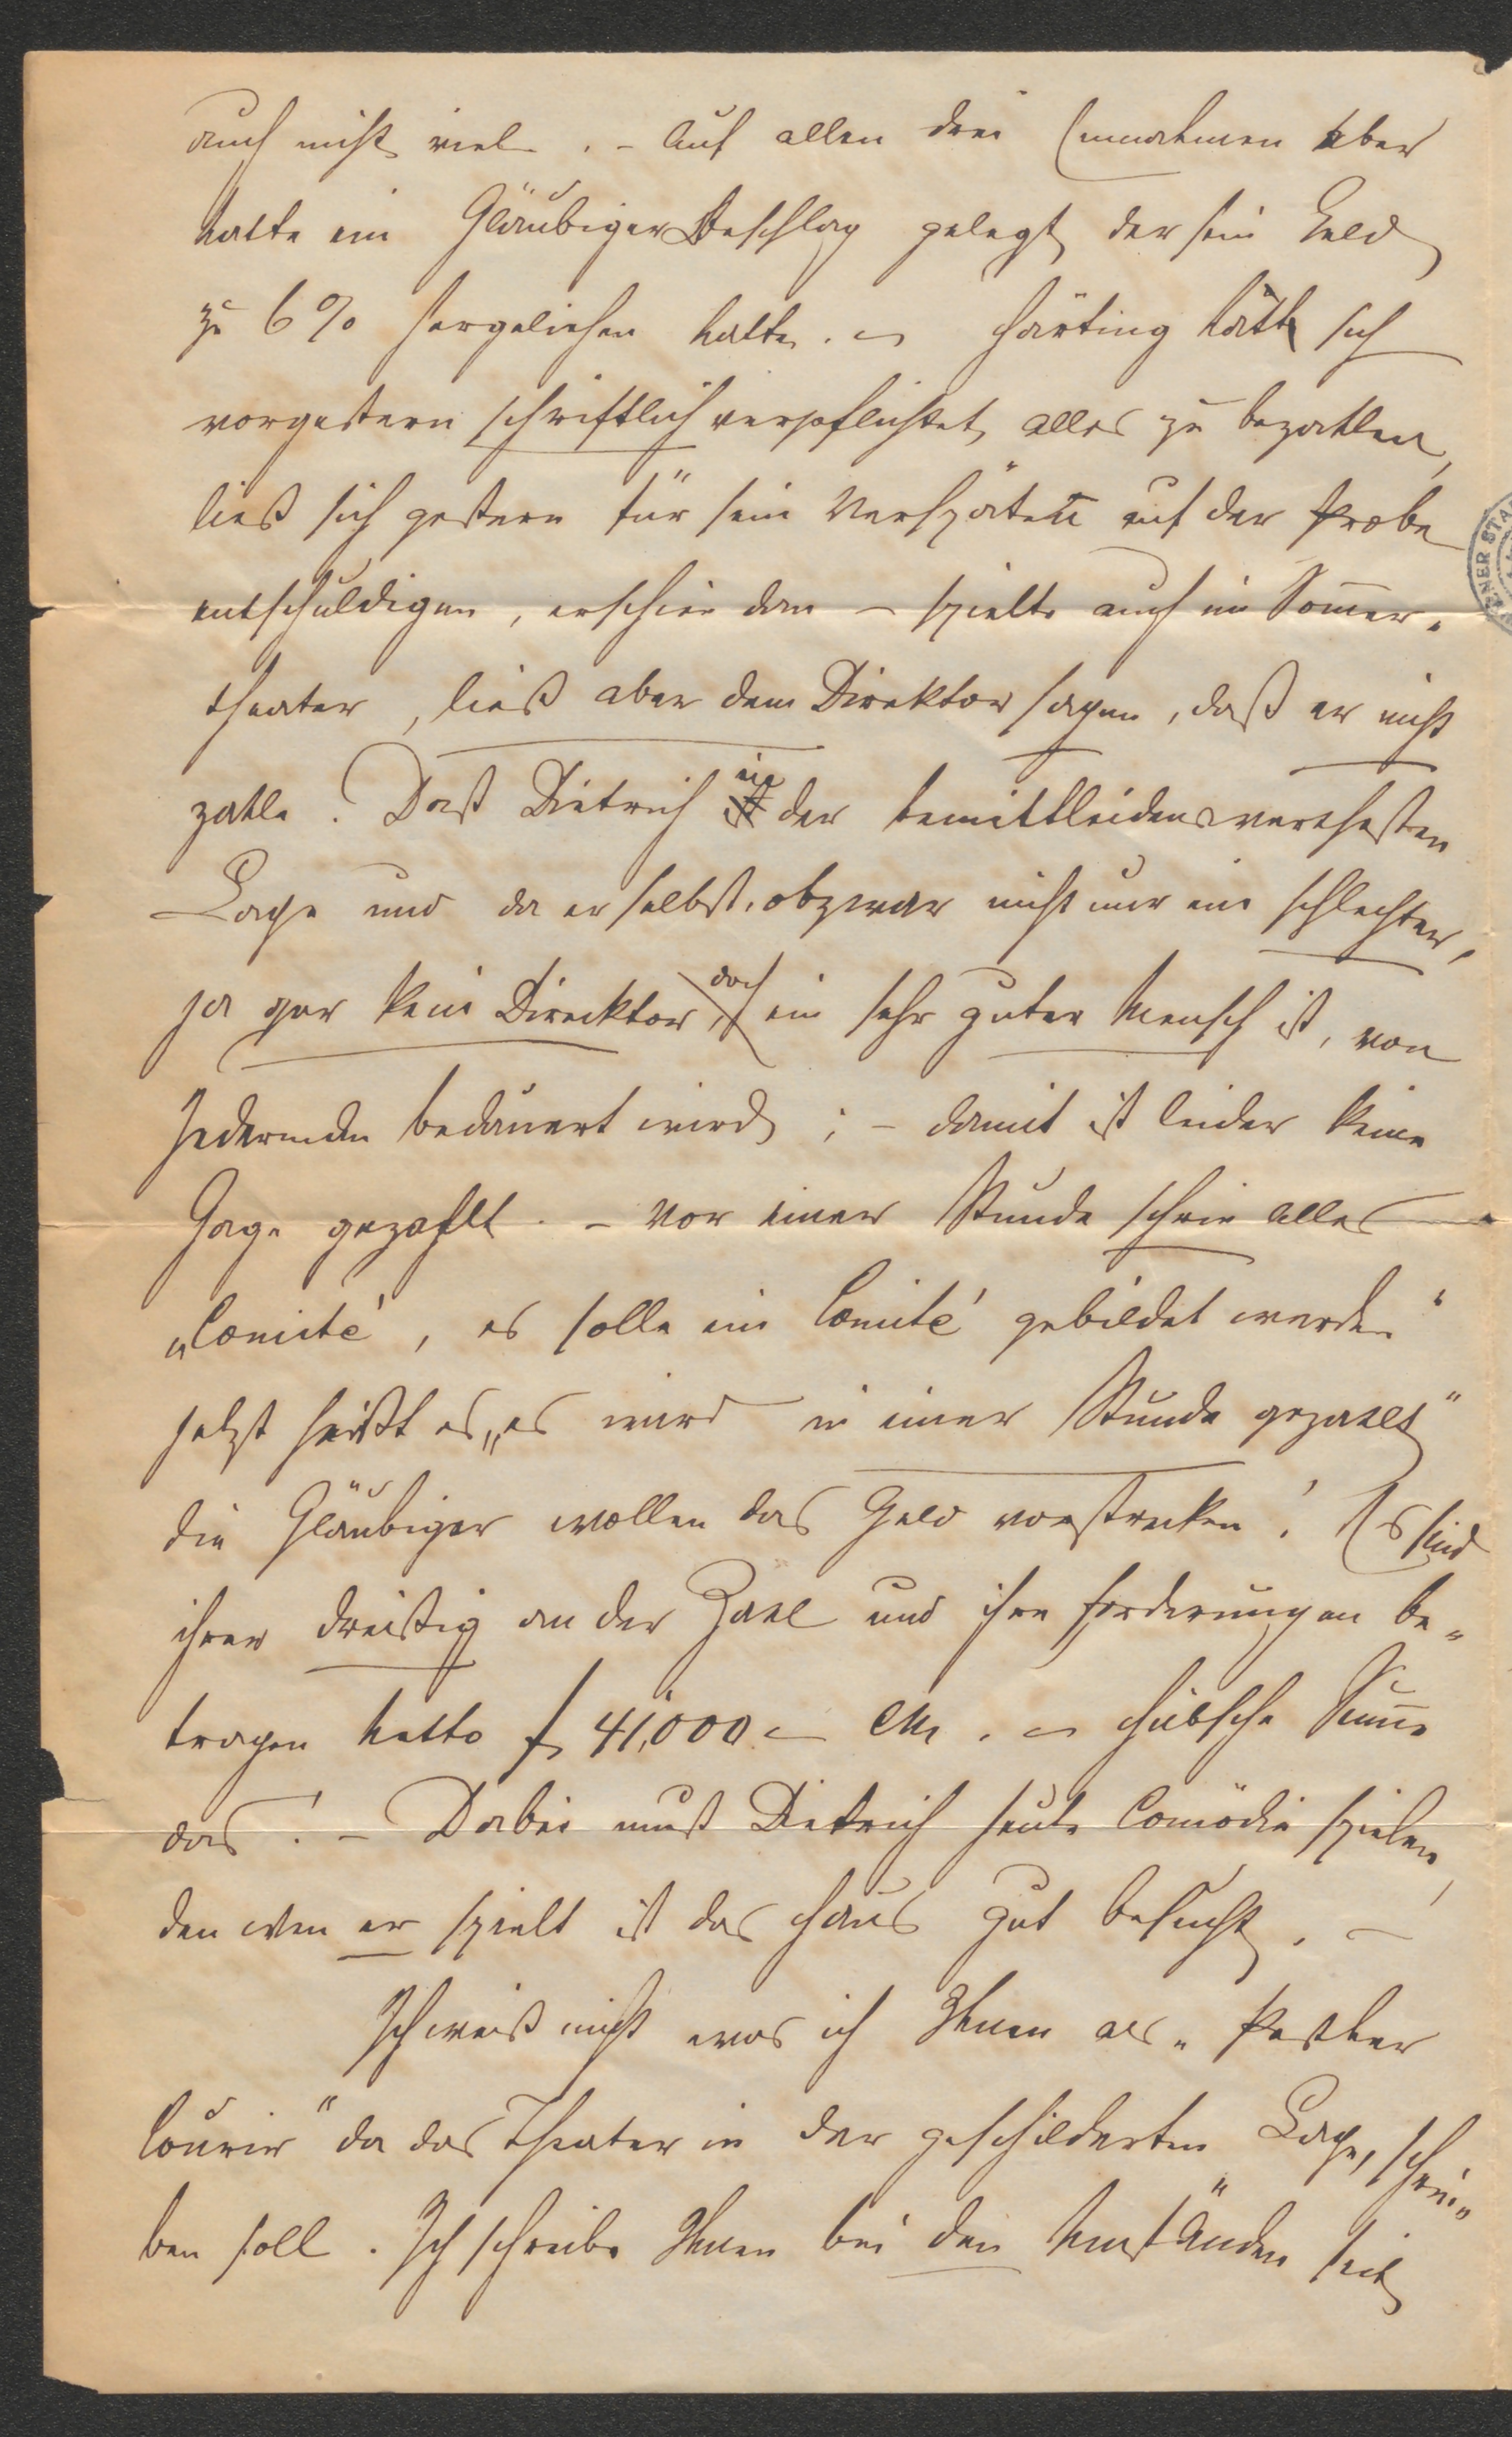 auch nicht viel. – Auf allen drei Einnahmen aber
hatte ein Gläubiger Beschlag gelegt der sein Geld
zu 6% hergeliehen hatte. – Härting hätte sich
vorgestern schriftlich verpflichtet alles zu bezahlen,
ließ sich gestern für sein Verspäten auf der Probe
entschuldigen, erschien dan – spielte auch im Som̄er-
theater, ließ aber dem Direktor sagen, daß er nicht
zahle. Daß Dietrich in der bemittleidenswerthesten
Lage und da er selbst, obzwar nicht nur ein schlechter,
ja gar kein Direcktor, doch ein sehr guter Mensch ist, von
Jederman bedauert wird; – damit ist leider keine
Gage gezahlt. – Vor einer Stunde schrie alles
„Comité, es solle ein Comité gebildet werden"
jetzt heißt es, „es wird in einer Stunde gezahlt"
die Gläubiger wollen das Geld vorstrecken! Es sind
ihrer dreißig an der Zahl und ihre Forderungen be-
tragen netto f 41,000 – CM. – hübsche Sum̄e
das! – Dabei muß Dietrich heute Comödie spielen,
den wen er spielt ist das Haus gut besucht. –
Ich weiß nicht was ich Ihnen als „Pesther
Courir" da das Theater in der geschilderten Lage, schrei-
ben soll. Ich schreibe Ihnen bei den Umständen seit